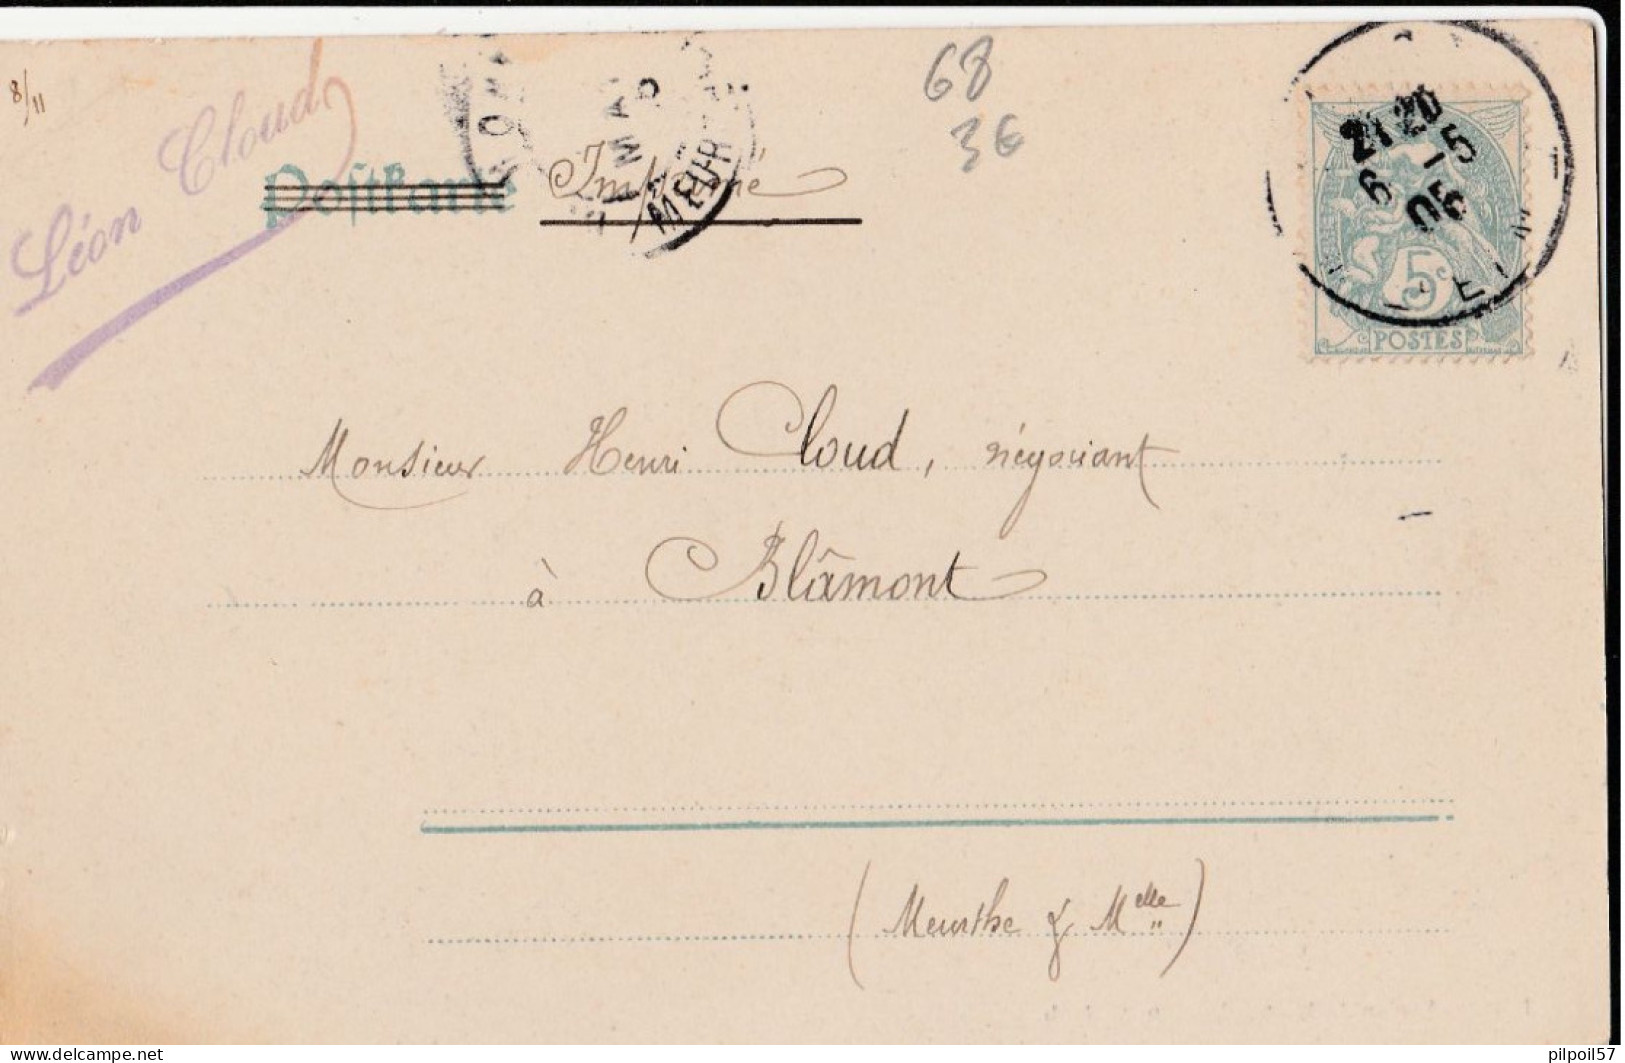 8/11
Léon Cloud
Postkarte
Imprimé
68
3€
MEUR
21 20
6 -5
05
5c
POSTES
Monsieur Henri Cloud, négociant
à Blâmont
(Meurthe & Melle)
delcampe.net
pilpoil57